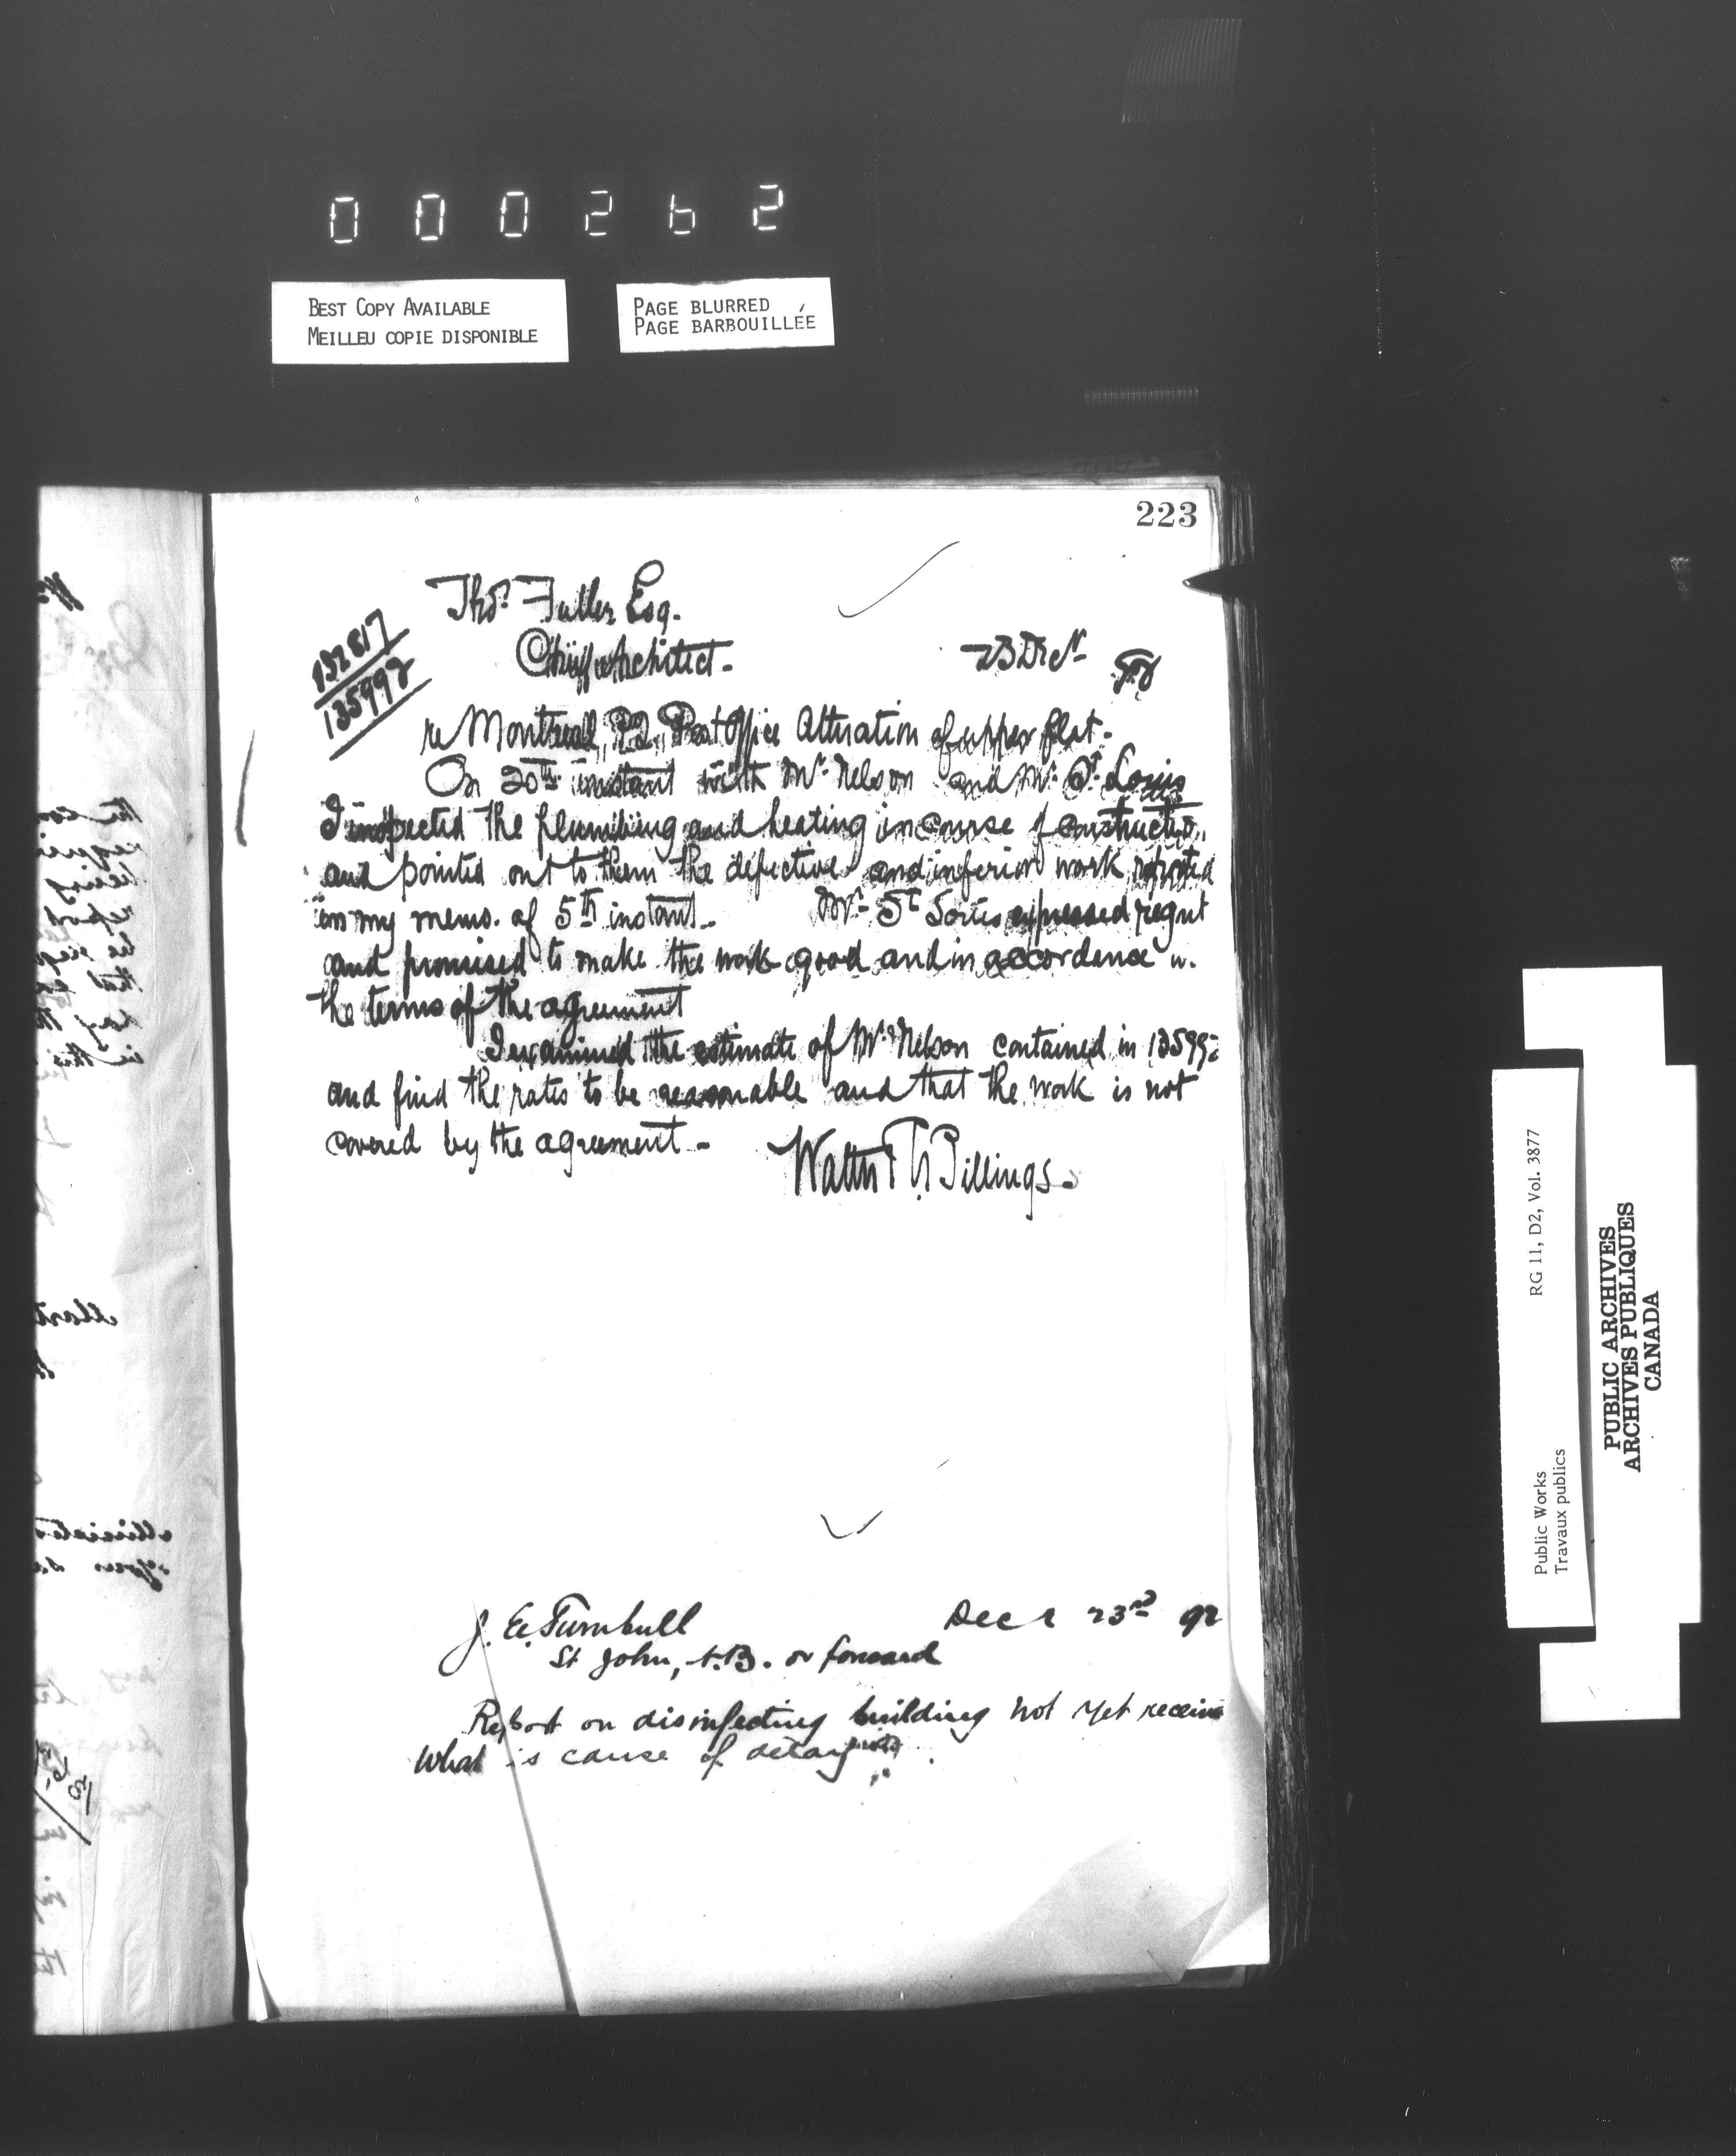 000262
BEST COPY AVAILABLE
MEILLEU COPIE DISPONIBLE
PAGE BLURRED
PAGE BARBOUILLÉE
223
Thos. Fuller Esq.
Chief Architect.
23 Decr. 92
132817
135992
re Montreal, P.Q. Post Office Alteration of upper flat.
On 20th instant with Mr. Nelson and Mr. St. Louis
I inspected the plumbing and heating in course of constructio
and pointed out to them the defective and inferior work reported
in my memo. of 5th instant. Mr. St Louis expressed regret
and promised to make the work good and in accordence w.
the terms of the agreement
I examined the estimate of Mr. Nelson contained in 13599
and find the rates to be reasonable and that the work is not
covered by the agreement.
Walter Billings.
J. E. Turnbull
Decr 23rd 92
St John, N.B. or forward
Report on disinfecting building not yet receive
What is cause of delay
RG 11, D2, Vol. 3877
Public Works
Travaux publics
PUBLIC ARCHIVES
ARCHIVES PUBLIQUES
CANADA